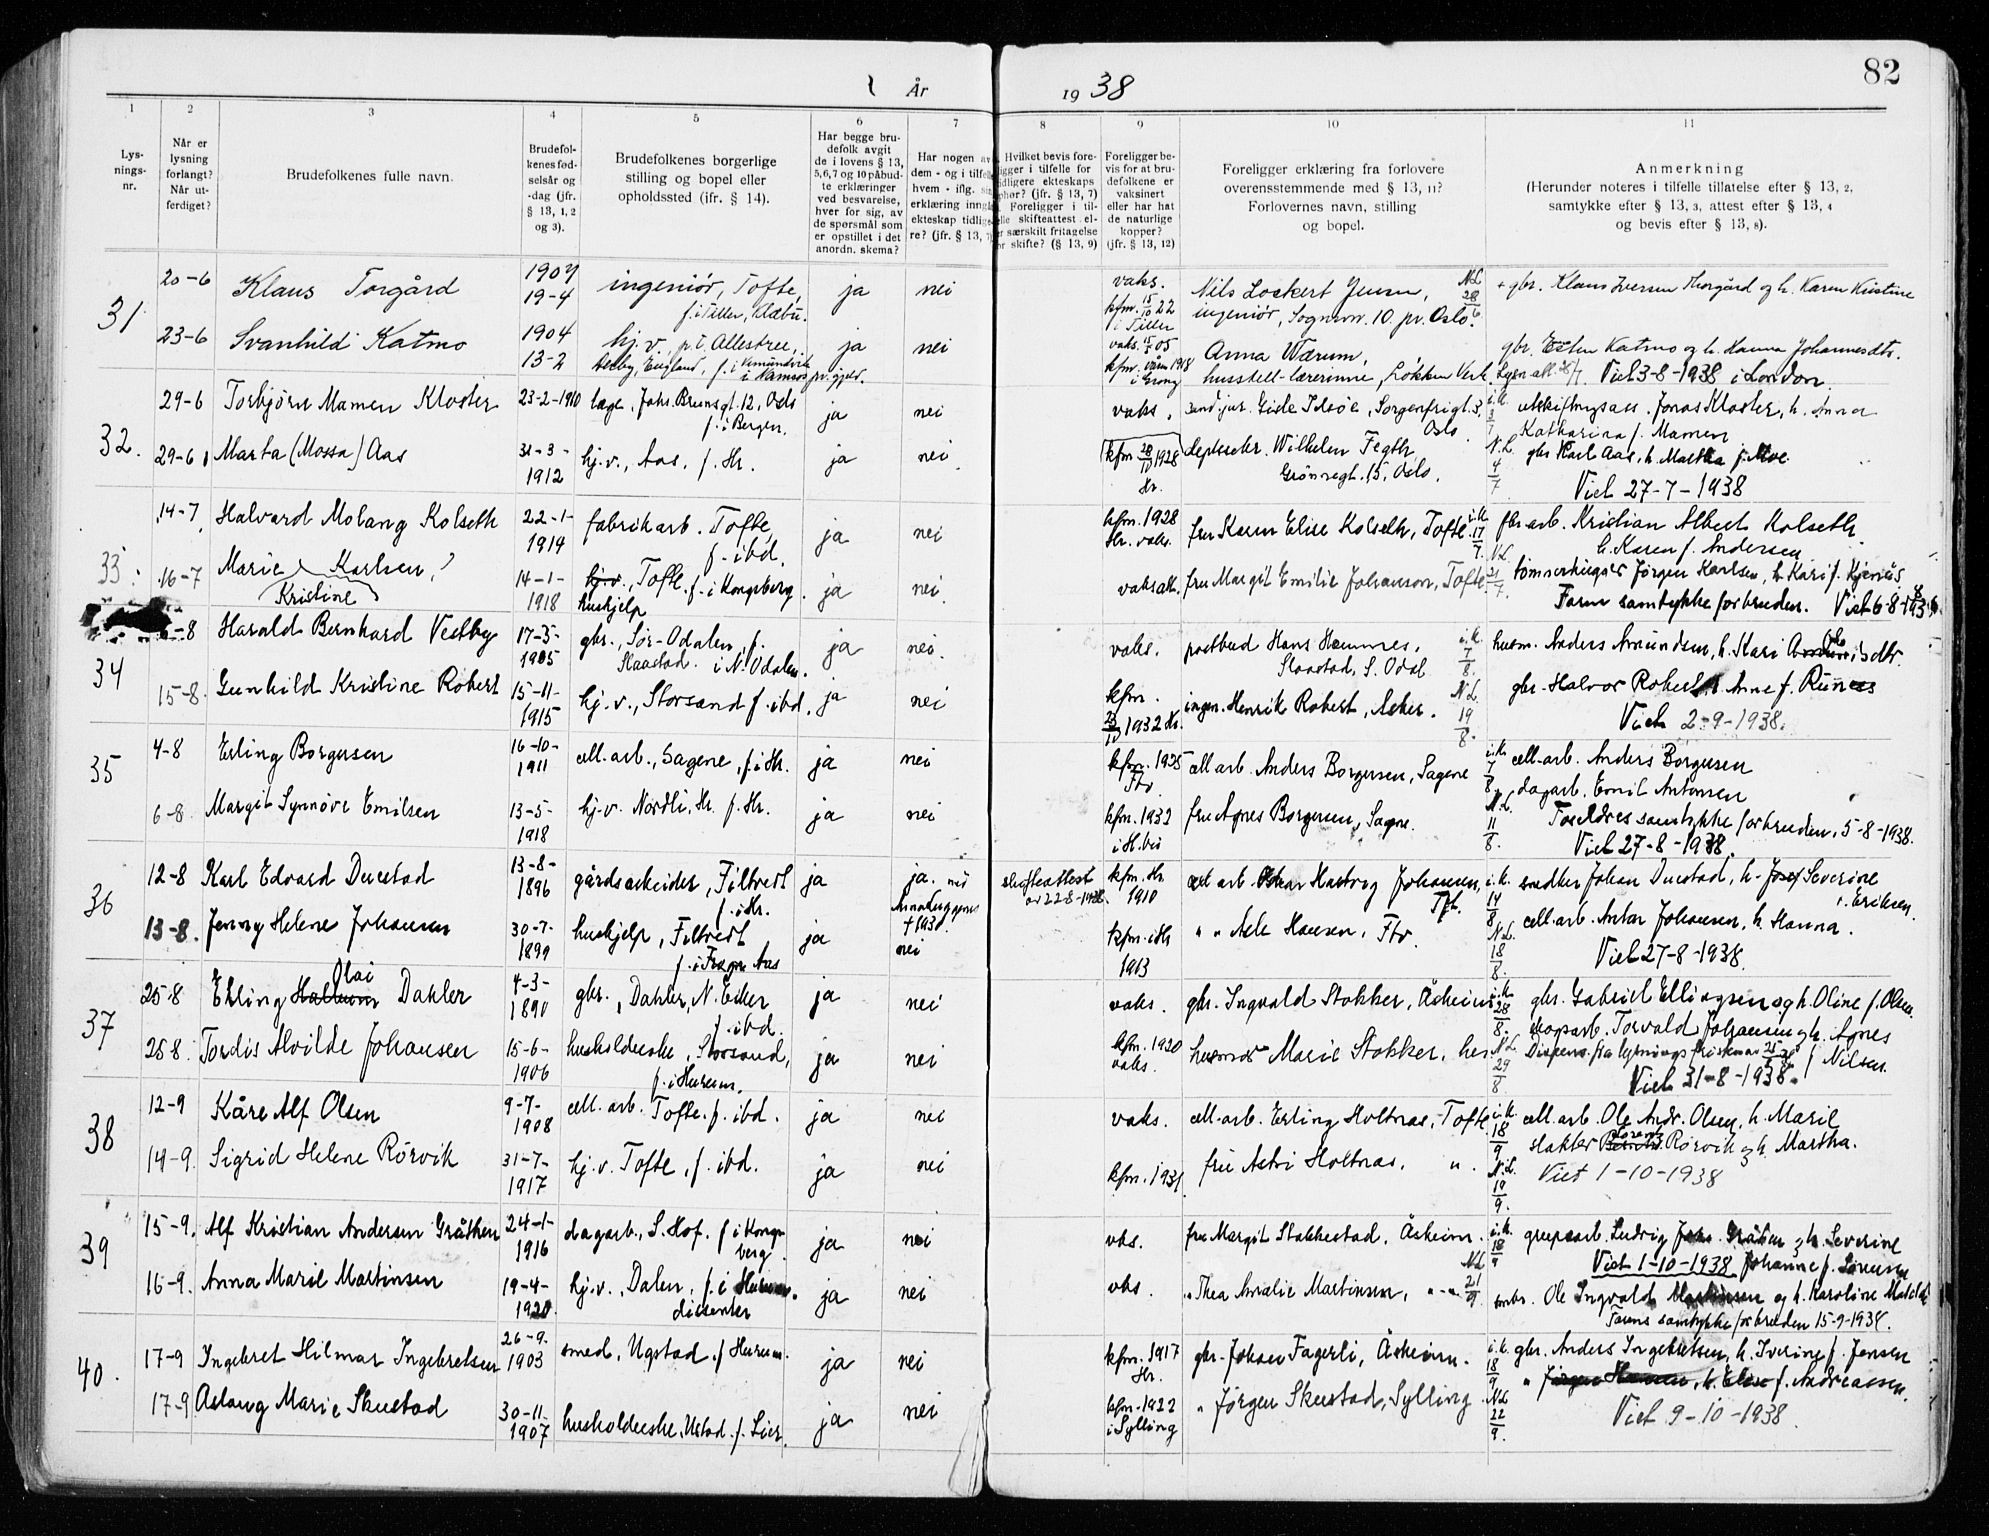 82
År 19 38
1 2 3 4 5 6 7 8 9 10 11
Lys-
nings-
nr.
Når er
lysning
forlangt?
Når ut-
ferdiget?
Brudefolkenes fulle navn.
Brudefol-
kenes fød-
selsår og
-dag (jfr.
§ 13, 1, 2
og 3).
Brudefolkenes borgerlige
stilling og bopel eller
opholdssted (jfr. § 14).
Har begge bru-
defolk avgit
de i lovens § 13,
5,6,7 og 10 påbud-
te erklæringer
ved besvarelse,
hver for sig, av
de spørsmål som
er opstillet i det
anordn. skema?
Har nogen av
dem - og i tilfelle
hvem - iflg.
erklæring inngått
ekteskap tidlige-
re? (jfr. § 13, 7)
Hvilket bevis fore-
ligger i tilfelle for
tidligere ekteskaps
ophør? (jfr. § 13, 7)
Foreligger i til-
felle skifteattest el-
ler særskilt fritagelse
for skifte? (§ 13, 9)
Foreligger be-
vis for at bru-
defolkene er
vaksinert
eller har hat
de naturlige
kopper?
(jfr. § 13, 12)
Foreligger erklæring fra forlovere
overensstemmende med § 13, 11?
Forlovernes navn, stilling
og bopel.
Anmerkning
(Herunder noteres i tilfelle tillatelse efter § 13, 2,
samtykke efter § 13, 3, attest efter § 13, 4
og bevis efter § 13, 8).
31
20-6 Klaus Torgård 1904 19-4 ingeniør, Tofte, ja nei
vaks. kfm. 15/10 22 i Tiller
Nils Lockert Jensen, N.L. 28/6
ingeniør, Sognsv. 10. pr. Oslo.
gbr. Klaus Iversen Thorgård og h. Karen Kristine
23-6 Svanhild Katmo 1904 13-2 hj.v. p.t. Allestree, ja nei
Derby, England, f. i
i Namsos pr.gjeld.
kfm. våren 1918 i Grong
Anna Wærum,
husstell-lærerinne, Løkken Verk.
gbr. Esten Katmo og h. Hanna Johannesdtr.
Viet 3-8-1938 i London.
32.
29-6 Torbjørn Mamen Kloster 23-2-1910 læge, Johs. Brunsgt. 12, Oslo ja nei
f. i Bergen.
vaks. cand. jur. Gide Idsøe, Sorgenfrigt. 3, Oslo.
utskiftnigsass. Jonas Kloster, h. Anna
Katharina f. Mamen
29-6 Marta (Mossa) Aas 31-3-1912 hj.v., Aas, f. Hr. ja nei
kfm 1928 Hr.
deptssekr. Wilhelm Fegth
Grønnegt. 15, Oslo.
N.L. 4/7
gbr. Karl Aas, h. Martha f. Moe.
Viet 27-7-1938
33.
14-7 Halvard Molang Kolseth 22-1-1914 fabrikarb. Tofte, f. ibd. ja nei
kfm. 1928 Hr. vaks.
fru Karen Elise Kolseth, Tofte
fbr. arb. Kristian Albert Kolseth
h. Karen f. Andersen
16-7 Marie Karlsen,
Kristine
14-1-1918 hj.v., Tofte, f. i Kongsberg. ja nei
huskjelp
vaksatt. fru Margit Emilie Johanson, Tofte
N.L. 21/7
tømmerhugger Jørgen Karlsen, h. Kari f. Kjenås
Farens samtykke for bruden. Viet 6-8-1938
34
-8 Harald Bernhard Vestby 17-3-1905 gbr., Sør-Odalen, f. ja nei
Slaastad. i N. Odalen.
vaks. postbud Hans Hamnes,
Slaastad, S. Odal
husm. Anders Amundsen, h. Kari
15-8 Gunhild Kristine Robert 15-11-1915 hj.v., Storsand f. ibd. ja nei
kfm. 1932 Hr.
ingen. Henrik Robert, Asker.
N.L. 19/8.
gbr. Halvor Robert h. Anne f. Runes
Viet 2-9-1938.
35
4-8 Erling Borgersen 16-10-1911 cell. arb., Sagene, f. i Hr. ja nei
kfm. 1925
cell arb. Anders Borgersen, Sagene
cell. arb. Anders Borgersen
6-8 Margit Synnøve Emilsen 13-5-1918 hj.v. Nordli, Hr. f. Hr. ja nei
kfm. 1932
fru Agnes Borgersen, Sagene.
N.L. 11/8.
dagarb. Emil Antonsen
Foreldres samtykke for bruden, 5-8-1938.
Viet 27-8-1938.
36
12-8 Karl Edvard Duestad 13-8-1896 gårdsarbeider, Filtvedt f. i Hr. ja ja.
†1930.
skifteattest
av 22-8-1938.
kfm. Hr 1910
cell arb. Oskar Hartvig Johansen,
i.k. 14/8
snedker Johan Duestad, h. Severine
f. Eriksen.
13-8. Jenny Helene Johansen 30-7-1899 huskjelp, Filtvedt ja nei
f. i Frogn Aas
kfm. i Hr 1913
" " Asle Hansen, Ftv.
N.L. 18/8.
cell. arb. Anton Johansen, h. Hanna.
Viet 27-8-1938.
37
25-8 Erling Olai Dahler 4-3-1890 gbr., Dahler, N. Eiker f. ibd. ja nei
vaks. gbr. Ingvald Stokker, Åskeim
i.k. 28/8.
gbr. Gabriel Ellingsen og h. Oline f. Olsen.
25-8 Tordis Alvilde Johansen 15-6-1906 husholderske, Storsand, f. i Hurum. ja nei
kfm. 1920 vaks.
Marie Stokker,
N.L. 29/8
skogarb. Torvald Johansen og h. Agnes
f. Nilsen
Viet 31-8-1938.
38
12-9 Kåre Alf Olsen 9-7-1908 cell. arb. Tofte. f. ibd. ja nei
vaks. cell. arb. Erling Holtnæs, Tofte
i.k. 18/9
cell. arb. Ole Andr. Olsen, h. Marie
14-9. Sigrid Helene Rørvik 31-7-1917 hj.v. Tofte, f. ibd. ja nei
kfm. 1931.
fru Astri Holtnæs, "
N.L. 19/9.
slakter Rørvik og h. Martha.
Viet 1-10-1938
39
15-9. Alf Kristian Andersen Gråthen 24-1-1916 dagarb., S. Hof, f. i Kongsberg. ja nei
vks. fru Margit Stokkestad, Åskeim.
i.k. 18/9
Ludvig og h. Severine
Johanne f. Sørensen
Viet 1-10-1938
16-9. Anna Marie Martinsen 19-4-1920. hj.v., Dalen, f. i Hurum. ja nei
dissenter
vks. " Thea Amalie Martinsen, " - "
N.L. 21/9
Ole Ingvald Martinsen og h. Karoline
Farens samtykke for bruden 15-9-1938.
40.
17-9 Ingebret Hilmar Ingebretsen 26-9-1903 smed, Ugstad. f. Hurum. ja nei
kfm. 1917 Hr.
gbr. Johan Fagerli, Åskeim.
i.k. 18/9
gbr. Anders Ingebretsen, h. Iverine f. Jensen
17-9 Aslaug Marie Skustad 30-11-1907 husholderske, Ustad. f. Lier. ja nei
kfm. 1922 i Sylling
" Jørgen Skustad, Sylling
N.L. 22/9.
f. Andreassen.
Viet 9-10-1938.